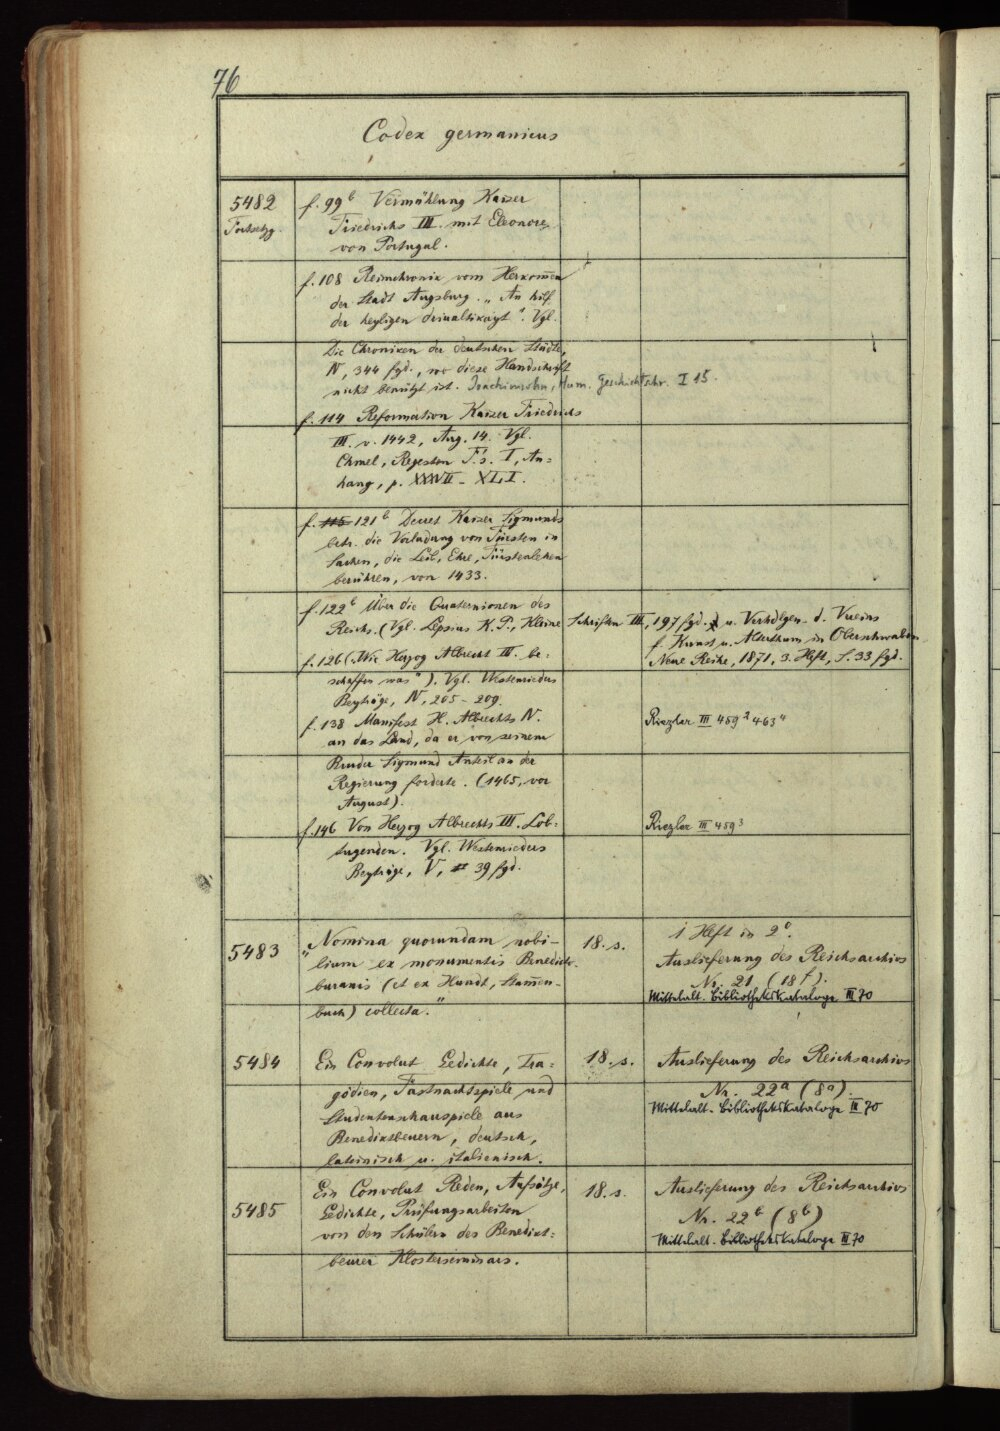 76
Codex germanicus
5482
Fortsetzg.
f. 99b Vermählung Kaiser
Friedrichs III. mit Eleonore
von Portugal.
f. 108 Reimchronik vom Herkom̄en
der Stadt Augsburg. „An hilf
der heyligen drivaltikayt". Vgl.
Die Chroniken der deutschen Städte,
IV, 344 fgd., wo diese Handschrift
nicht benützt ist. Joachimsohn, Hum. Geschichtschr. I 15.
f. 114 Reformation Kaiser Friedrichs
III. v. 1442, Aug. 14. Vgl.
Chmel, Regesten F.'s. I, An=
hang, p. XXXVII - XLI.
f. 115 121b Decret Kaiser Sigmunds
betr. die Vorladung von Fürsten in
Sachen, die Leib, Ehre, Fürstenlehen
berühren, von 1433.
f. 122b Über die Quaternionen des
Reichs. (Vgl. Lepsius K. P., Kleine Schriften III, 197 fgd. u. Verhdlgen d. Vereins
f. Kunst u. Alterthum in Oberschwaben
Neue Reihe, 1871, 3. Heft, S. 33 fgd.
f. 126 („Wie Herzog Albrecht III. be=
schaffen was"). Vgl. Westenrieders
Beyträge, IV, 205 - 209.
f. 138 Manifest H. Albrechts IV.
an das Land, da er von seinem
Bruder Sigmund Anteil an der
Regierung forderte. (1465, vor
August).
Riezler III 459 2 463 4
f. 146 Von Herzog Albrechts III. Lob=
tugenden. Vgl. Westenrieders
Beyträge, V, 39 fgd.
Riezler III 459 3
5483
„Nomina quorundam nobi-
lium ex monumentis Benedicto-
buranis (et ex Hundt, Stam̄en-
buch) collecta."
18. s.
1 Heft in 2°.
Auslieferung des Reichsarchivs
Nr. 21 (18 f).
Mittelalt. Bibliothekskataloge III 70
5484
Ein Convolut Gedichte, Tra=
gödien, Fastnachtspiele und
Studentenschauspiele aus
Benediktbeuern, deutsch,
lateinisch u. italienisch.
18. s.
Auslieferung des Reichsarchivs
Nr. 22a (8a).
Mittelalt. Bibliothekskataloge III 70
5485
Ein Convolut Reden, Aufsätze,
Gedichte, Prüfungsarbeiten
von den Schülern des Benedikt=
beurer Klosterseminars.
18. s.
Auslieferung des Reichsarchivs
Nr. 22b (8b)
Mittelalt. Bibliothekskataloge III 70